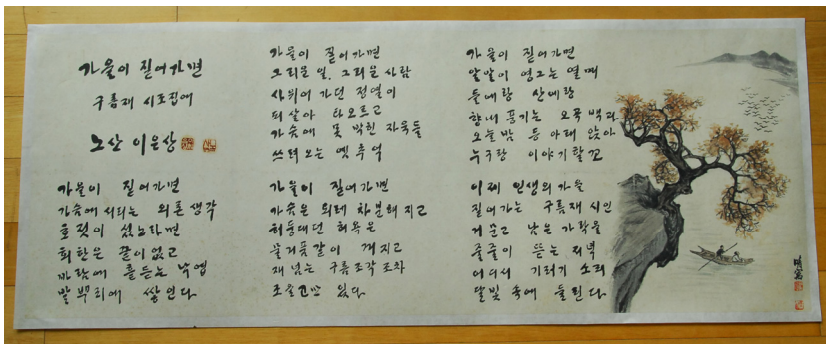 가을이 짙어가면
구름재 시조집에
노산 이은상
가을이 짙어가면
가슴에 서리는 외론 생각
호젓이 섰노라면
회한은 끝이 없고
바람에 흩듣는 낙엽
발뿌리에 쌓인다
가을이 짙어가면
그리운 일, 그리운 사람
사위어 가던 정열이
되살아 타오르고
가슴에 못 박힌 자욱들
쓰려오는 옛 추억
가을이 짙어가면
가슴은 되레 차분해 지고
허둥대던 허욕은
물거품같이 꺼지고
재 넘는 구름조각 조차
조을고만 있다
가을이 짙어가면
알알이 영그는 열매
들에랑 산에랑
향내 풍기는 오곡 백과
오늘밤 등 아래 앉아
누구랑 이야기할꼬
이제 인생의 가을
짙어가는 구름재 시인
거문고 낮은 가락을
줄줄이 뜯는 저녁
어디서 기러기 소리
달빛 속에 들린다